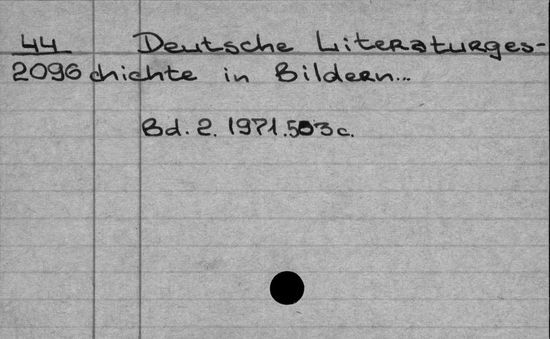 44 Deutsche Literaturges-
2096 chichte in Bildern...
Bd. 2. 1971. 503 c.